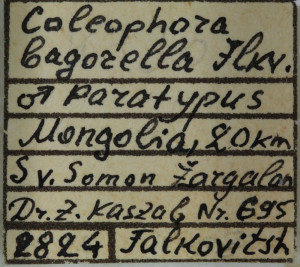 Coleophora
bagorella Flkv.
♂ paratypus
Mongolia, 20km
S v. Somon Žargalan
Dr. Z. Kaszab Nr. 695
2824 Falkovitsh